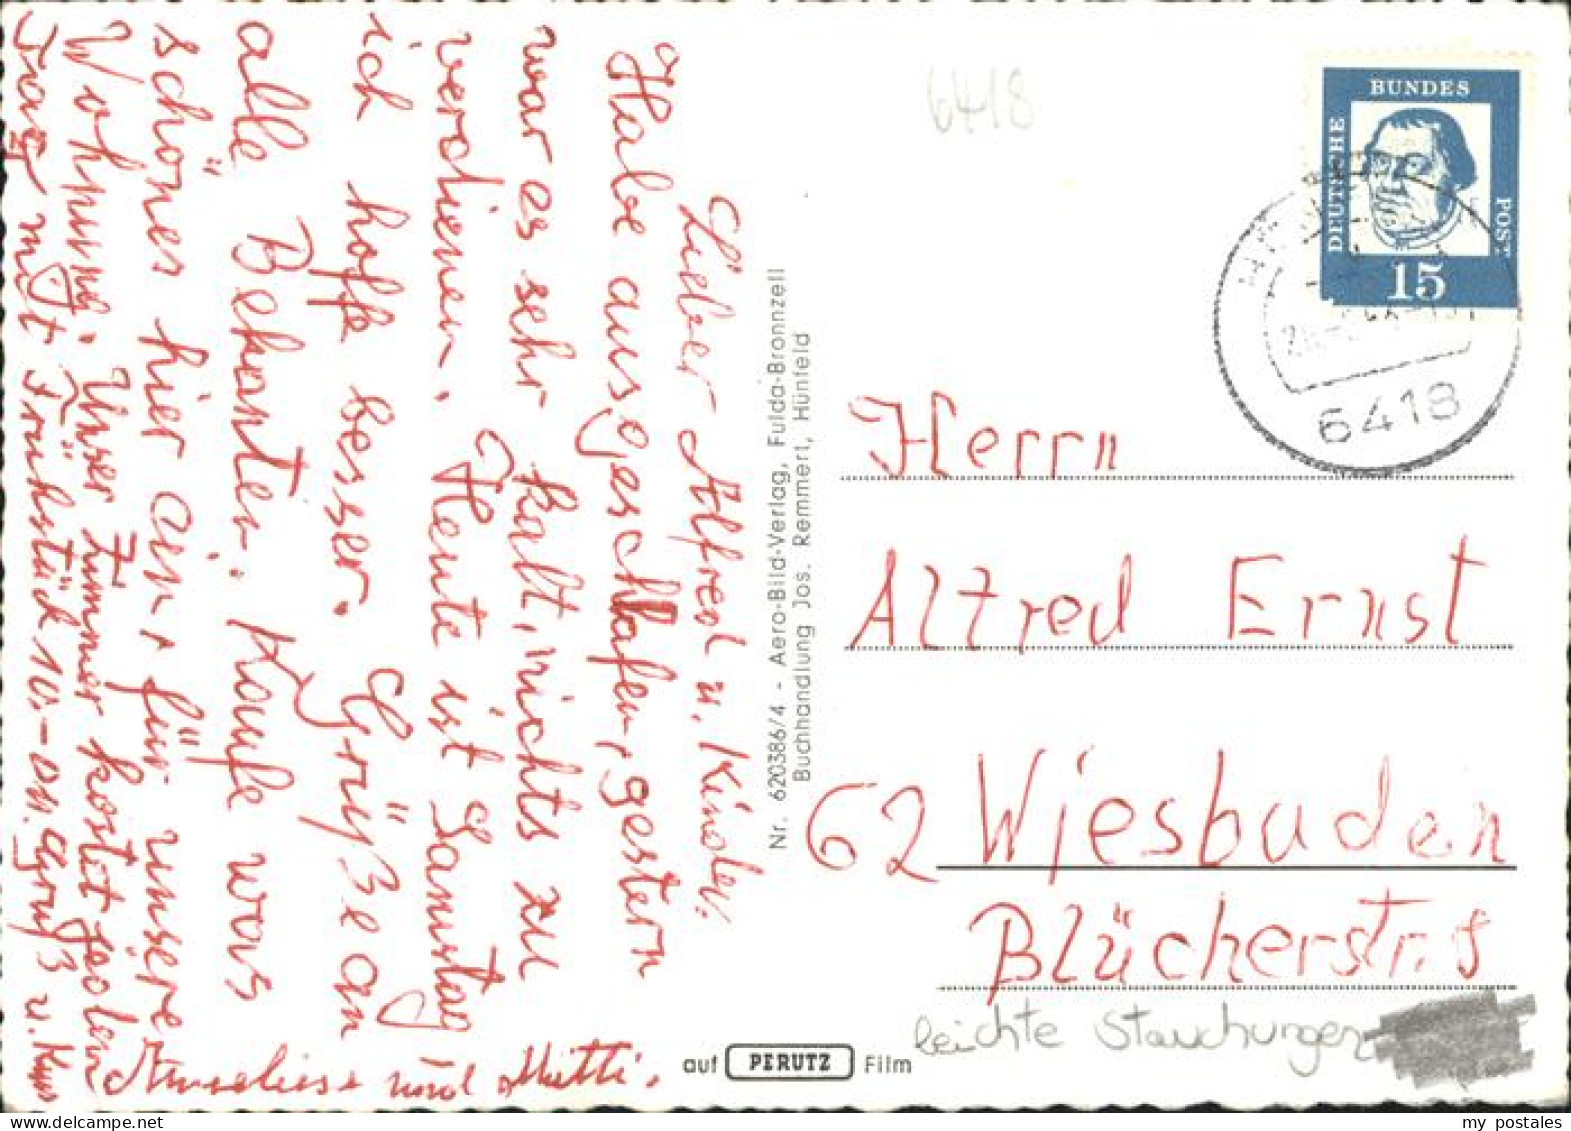 Lieber Alfred u. Kinder.
Habe ausgeschlafen, gestern
war es sehr kalt, nichts zu
verdienen. Heute ist Samstag
ich hoffe besser. Grüße an
alle Bekanten. Kaufe was
schönes hier ein, für unsere
Wohnung. Unser Zimmer kostet jeden
Tag mit Frühstück 10.- DM. Gruß u. Kuss
Anneliese und Mutti.
Nr. 620386/4 - Aero-Bild-Verlag, Fulda-Bronnzell
Buchhandlung Jos. Remmert, Hünfeld
auf PERUTZ Film
6418
DEUTSCHE BUNDES POST
15
6418
Herrn
Alfred Ernst
62 Wiesbaden
Blücherstr. 5
leichte Stauchungen
my postales